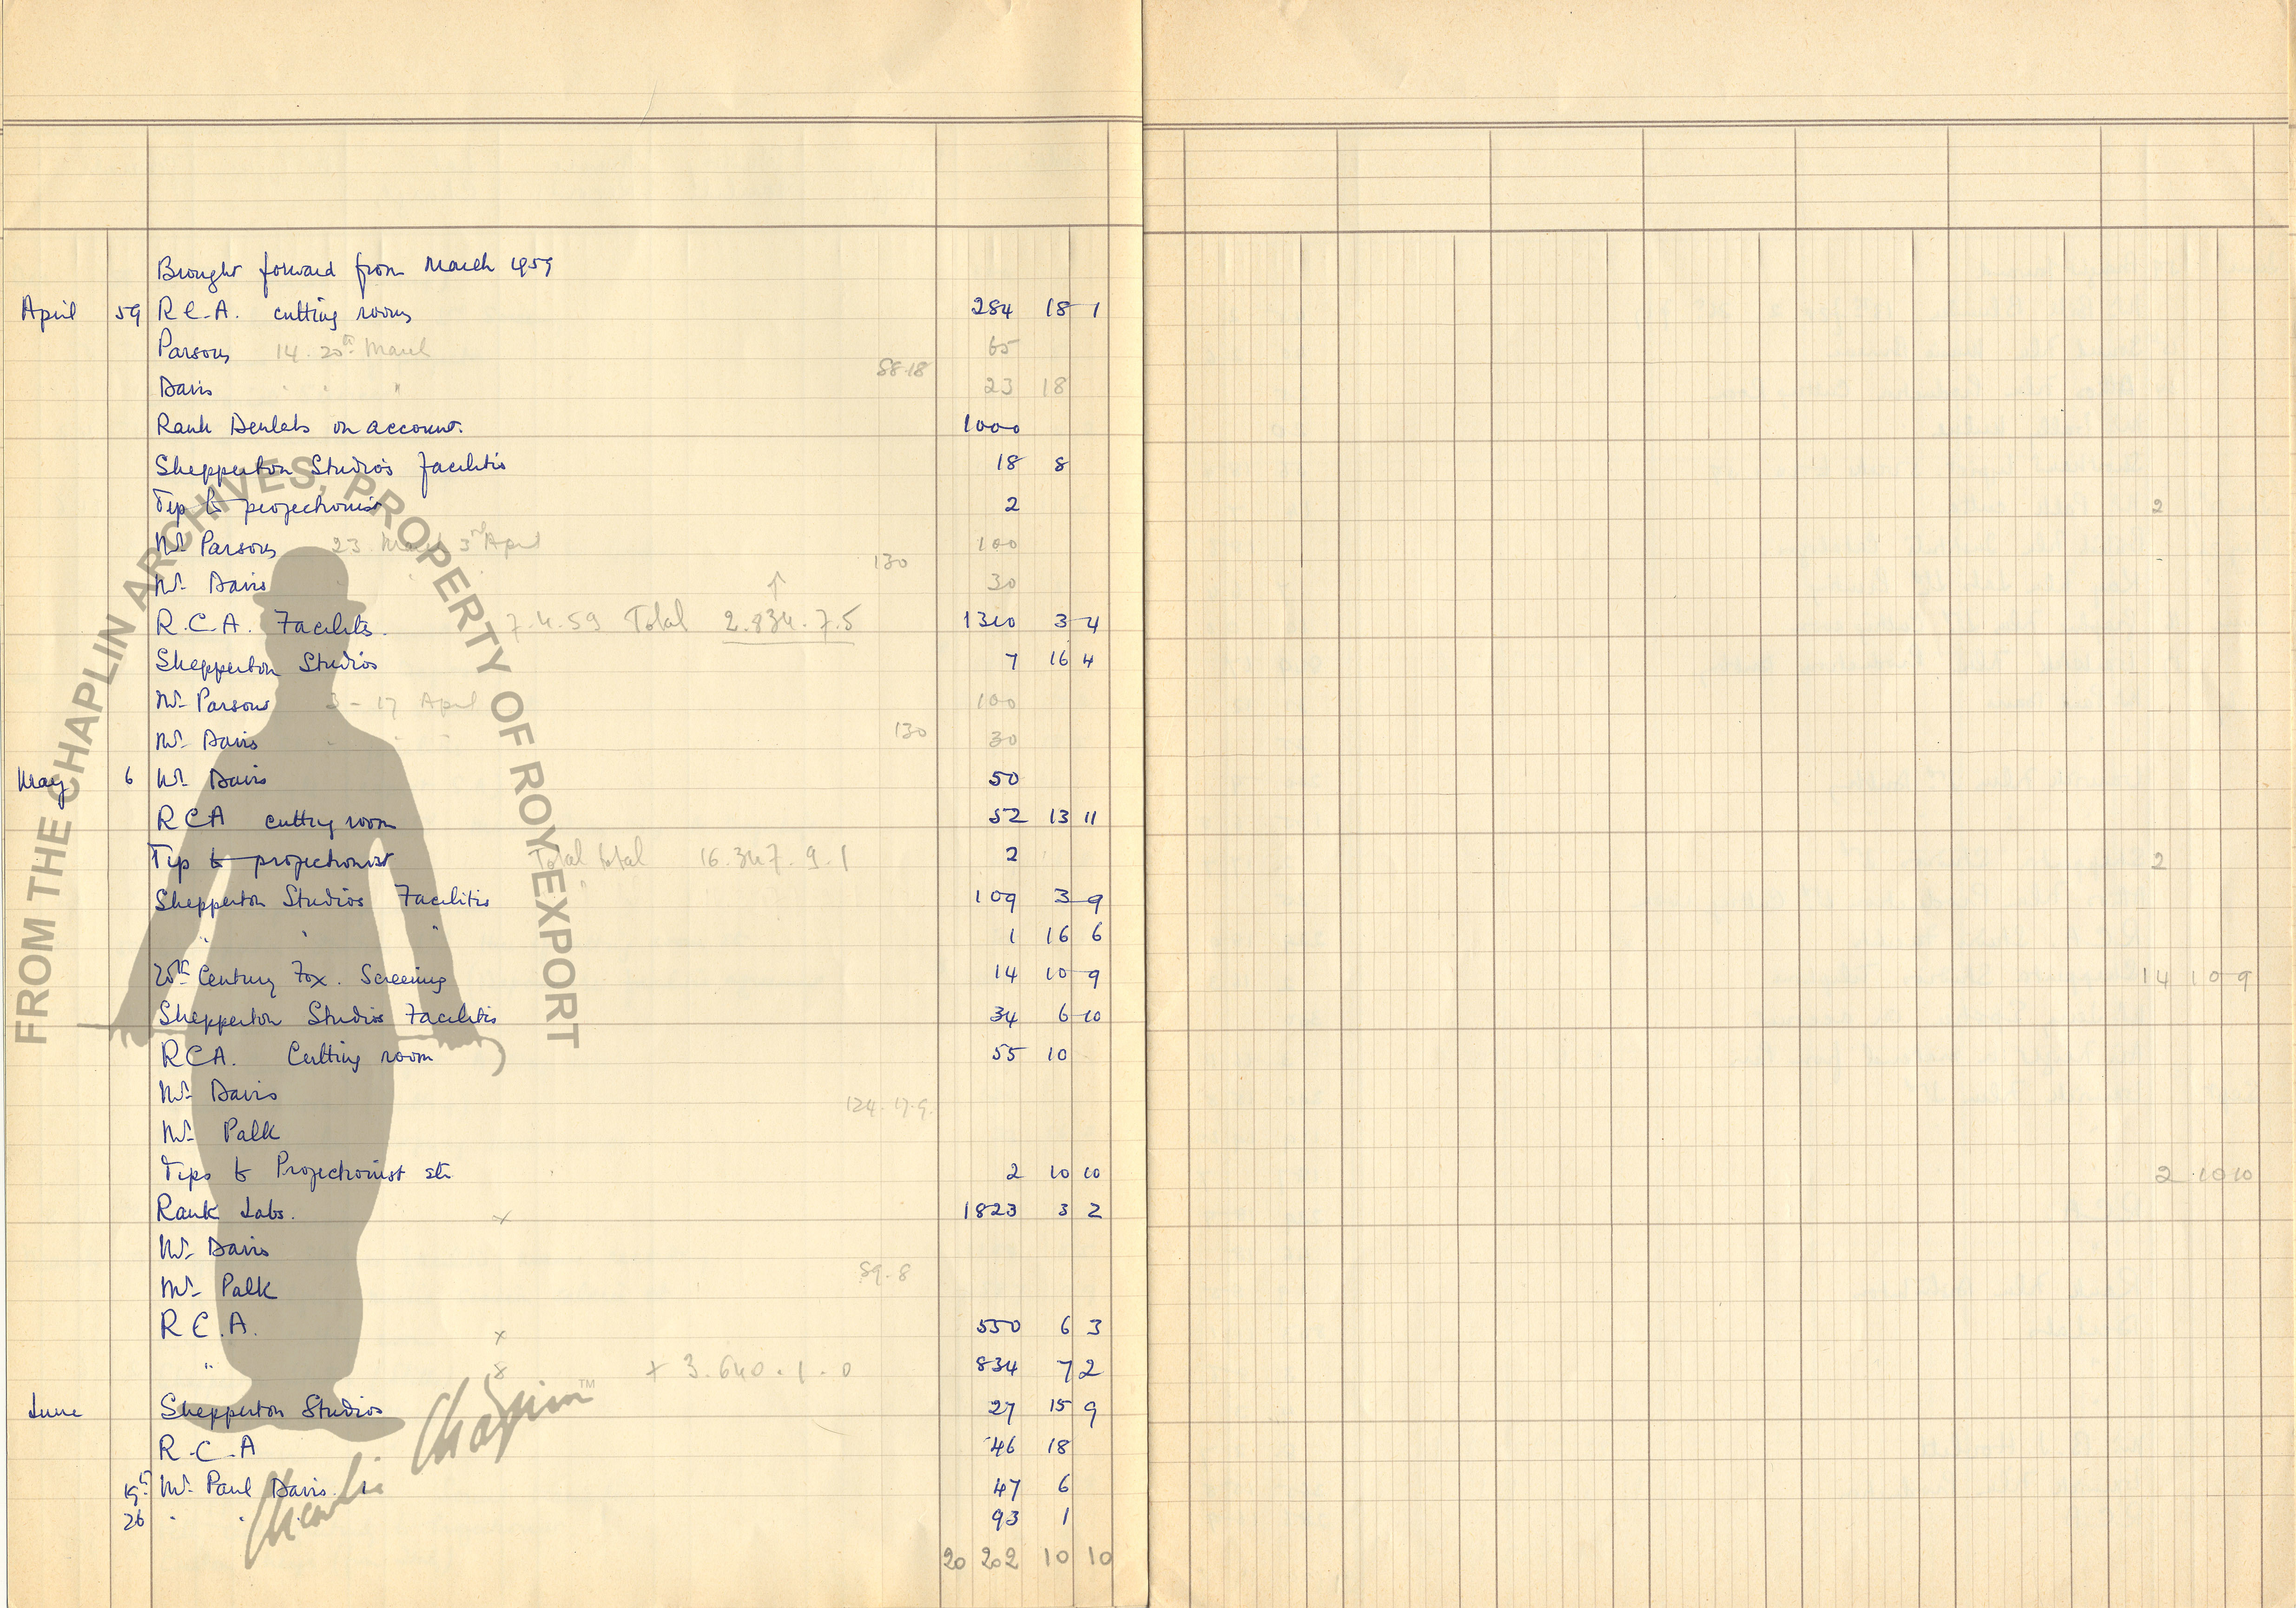 Brought forward from March 1959
April 59 R.C.A. cutting rooms 284 18 1
Parsons 14. 20th March 65
88.18
Davis " " " 23 18
Rank Denlabs on account. 1000
Shepperton Studios facilitis 18 8
Tip to projectionist 2 2
Mr Parsons 23 March 3rd April 100
130
Mr Davis 30
R.C.A. Facilits. 7.4.59 Total 2.834.7.5 1310 3 4
Shepperton Studios 7 16 4
Mr Parsons 3 - 17 April 100
130
Mr Davis " " " 30
May 6 Mr Davis 50
RCA cutting room 52 13 11
Tip to projectionist Total total 16.347.9.1 2 2
Shepperton Studios Facilitis 109 3 9
" " " 1 16 6
20th Century Fox. Screening 14 10 9 14 10 9
Shepperton Studios Facilitis 34 6 10
RCA. Cutting room 55 10
Mr Davis
124.17.9.
Mr Palk
Tips to Projectionist etc 2 10 10 2 10 10
Rank Labs. x 1823 3 2
Mr Davis
89.8
Mr Palk
R.C.A. x 550 6 3
" 8 + 3.640.1.0 834 7 2
June Shepperton Studios 27 15 9
R.C.A 46 18
19th Mr Paul Davis. 47 6
26 " " " 93 1
20 202 10 10
FROM THE CHAPLIN ARCHIVES, PROPERTY OF ROY EXPORT
Charlie Chaplin™